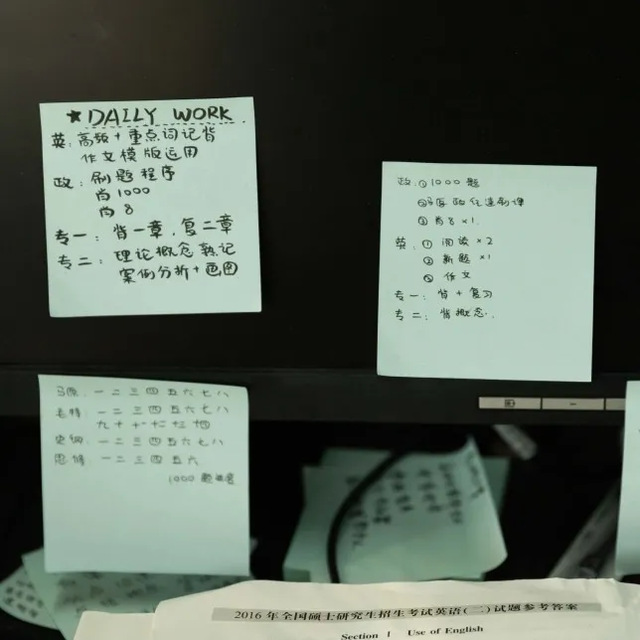 ★DAILY WORK
英:高频+重点词记背
作文模版运用
政:刷题程序
肖1000
肖8
专一:背一章,复二章
专二:理论概念熟记
案例分析+画图
政:①1000题
③肖8 ×1.
英:①阅读×2
②新题×1
③作文
专一:背+复习
专二:背概念.
马原:一二三四五六七八
毛特:一二三四五六七八
九十十一十二十三十四
史纲:一二三四五六七八
思修:一二三四五六
1000题
2016年全国硕士研究生招生考试英语(二)试题参考答案
Section I Use of English